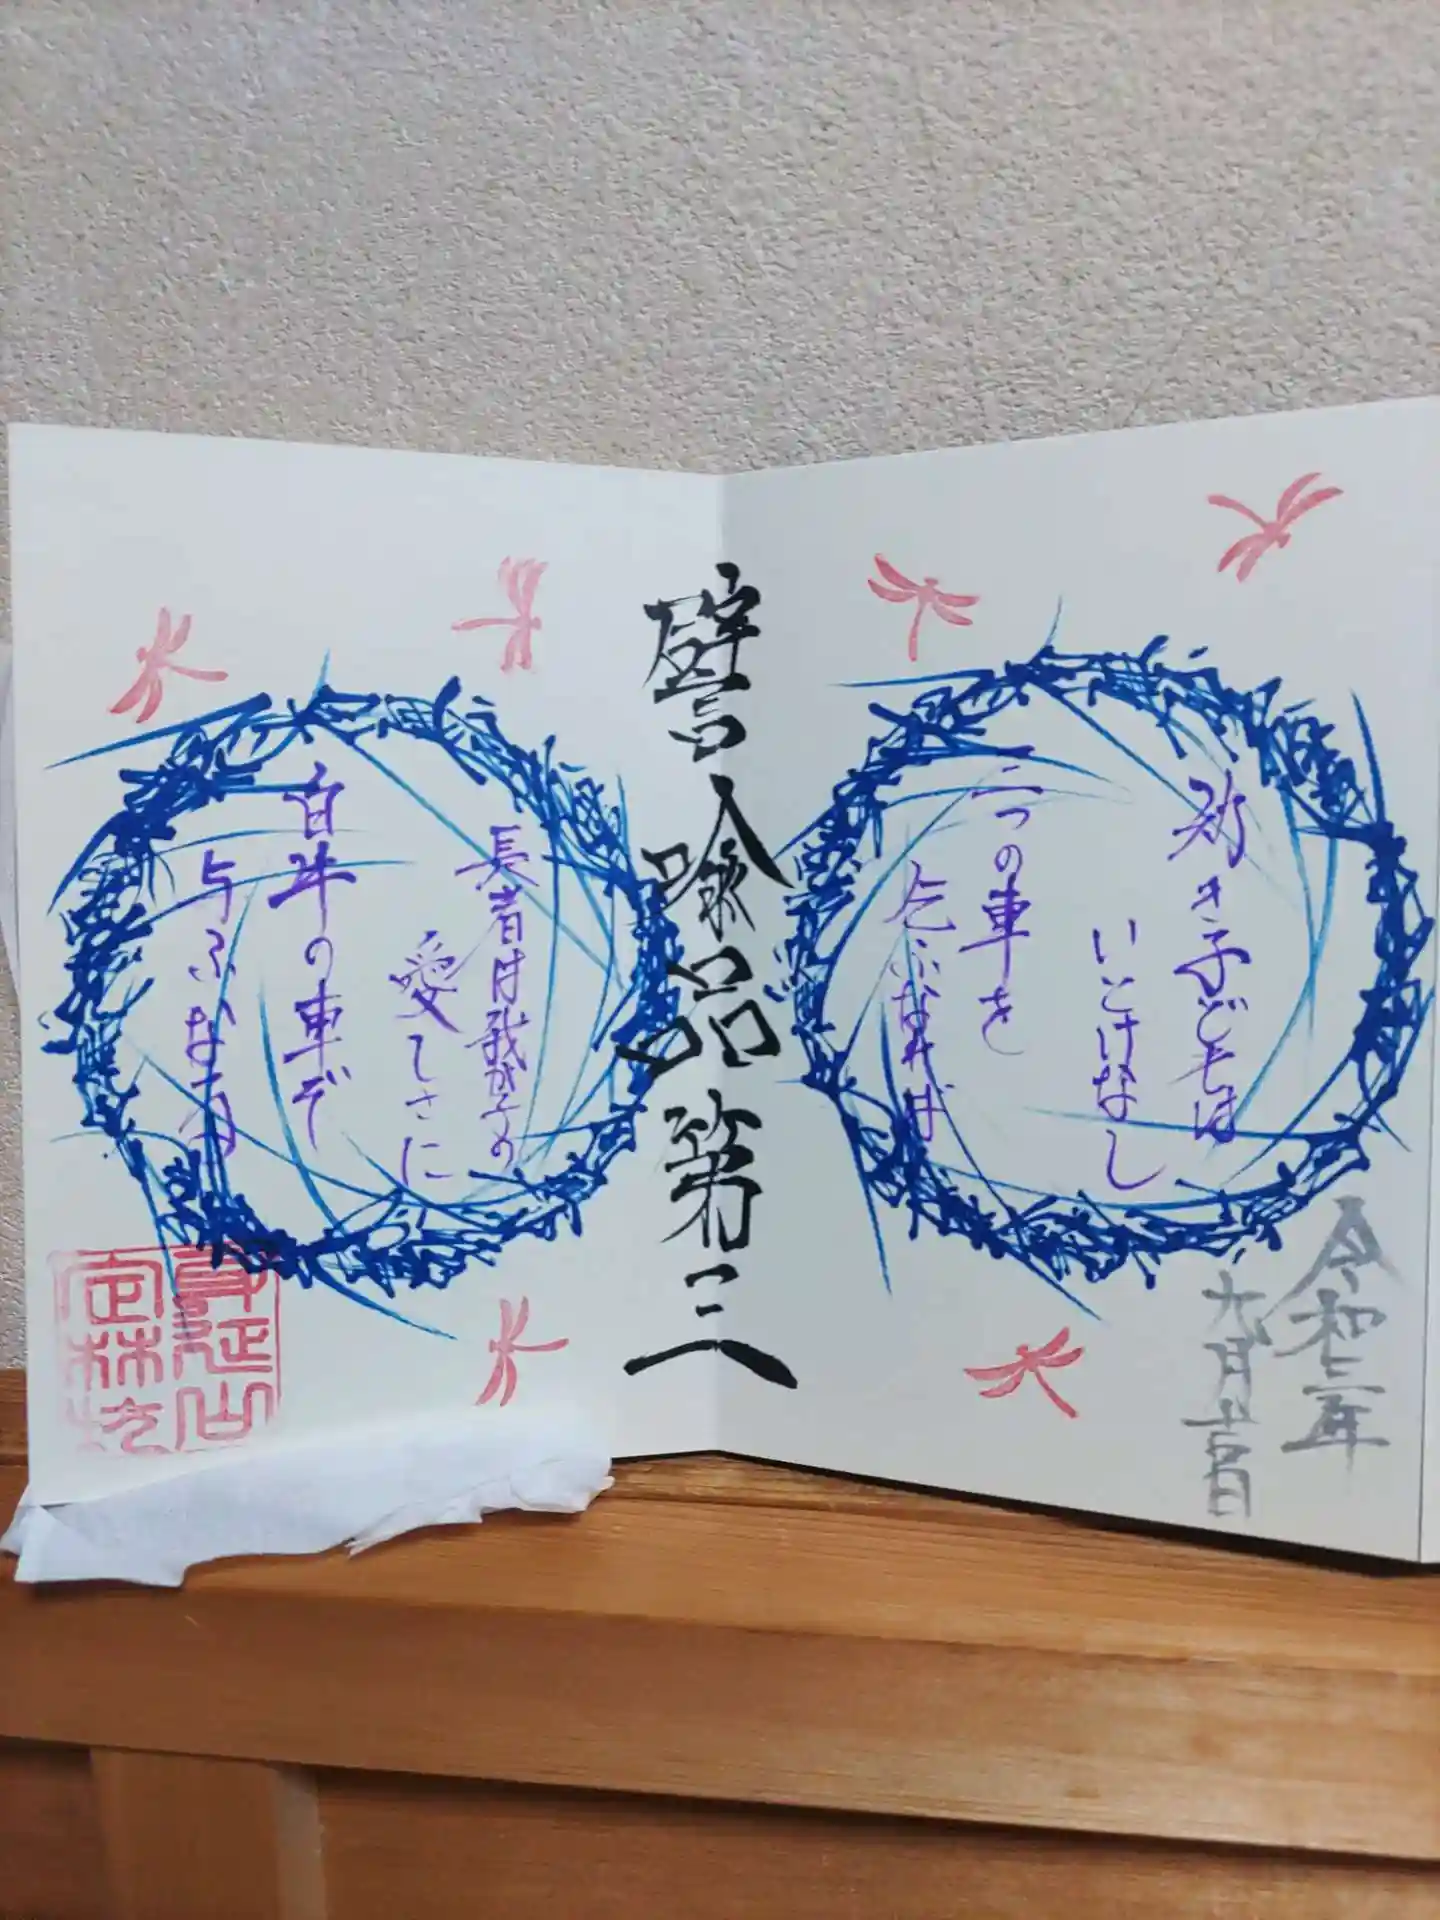 令和三年
九月吉日
幼き子どもは
いとけなし
三つの車を
乞ふなれば
譬喩品第三
長者は我が子の
愛しさに
白牛の車ぞ
与ふなる
身延山
定林坊